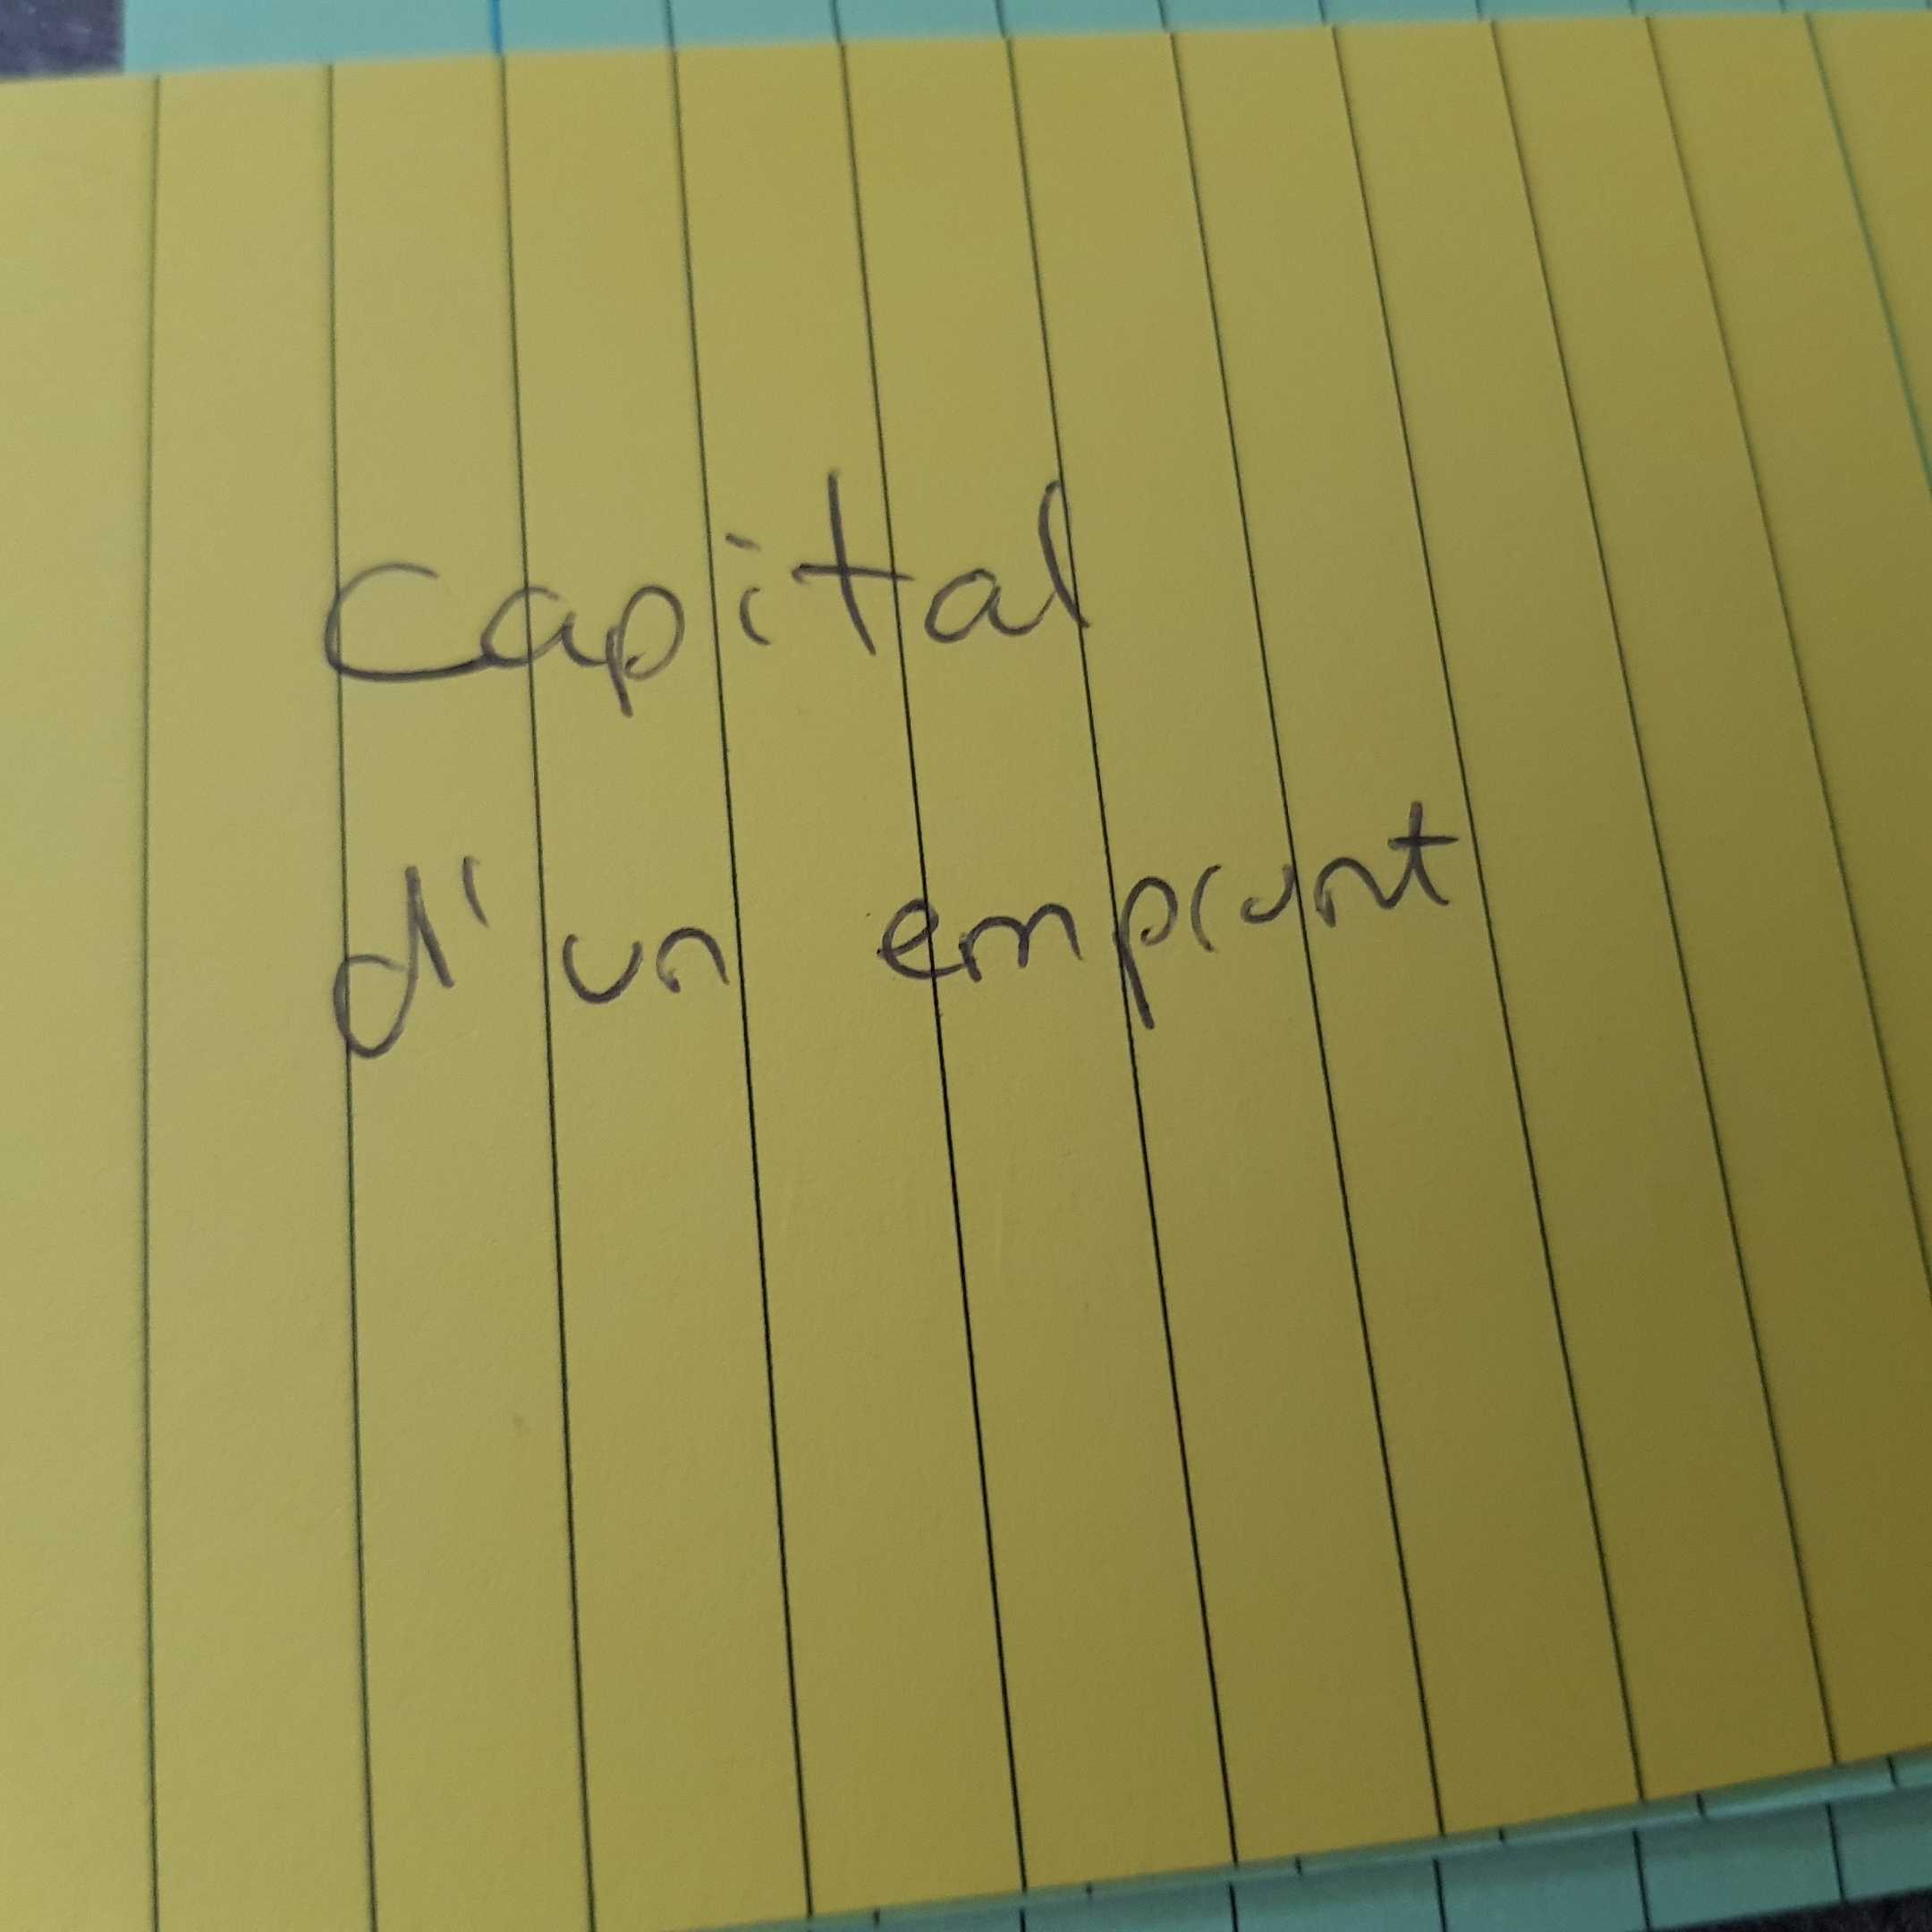 capital
d'un emprunt